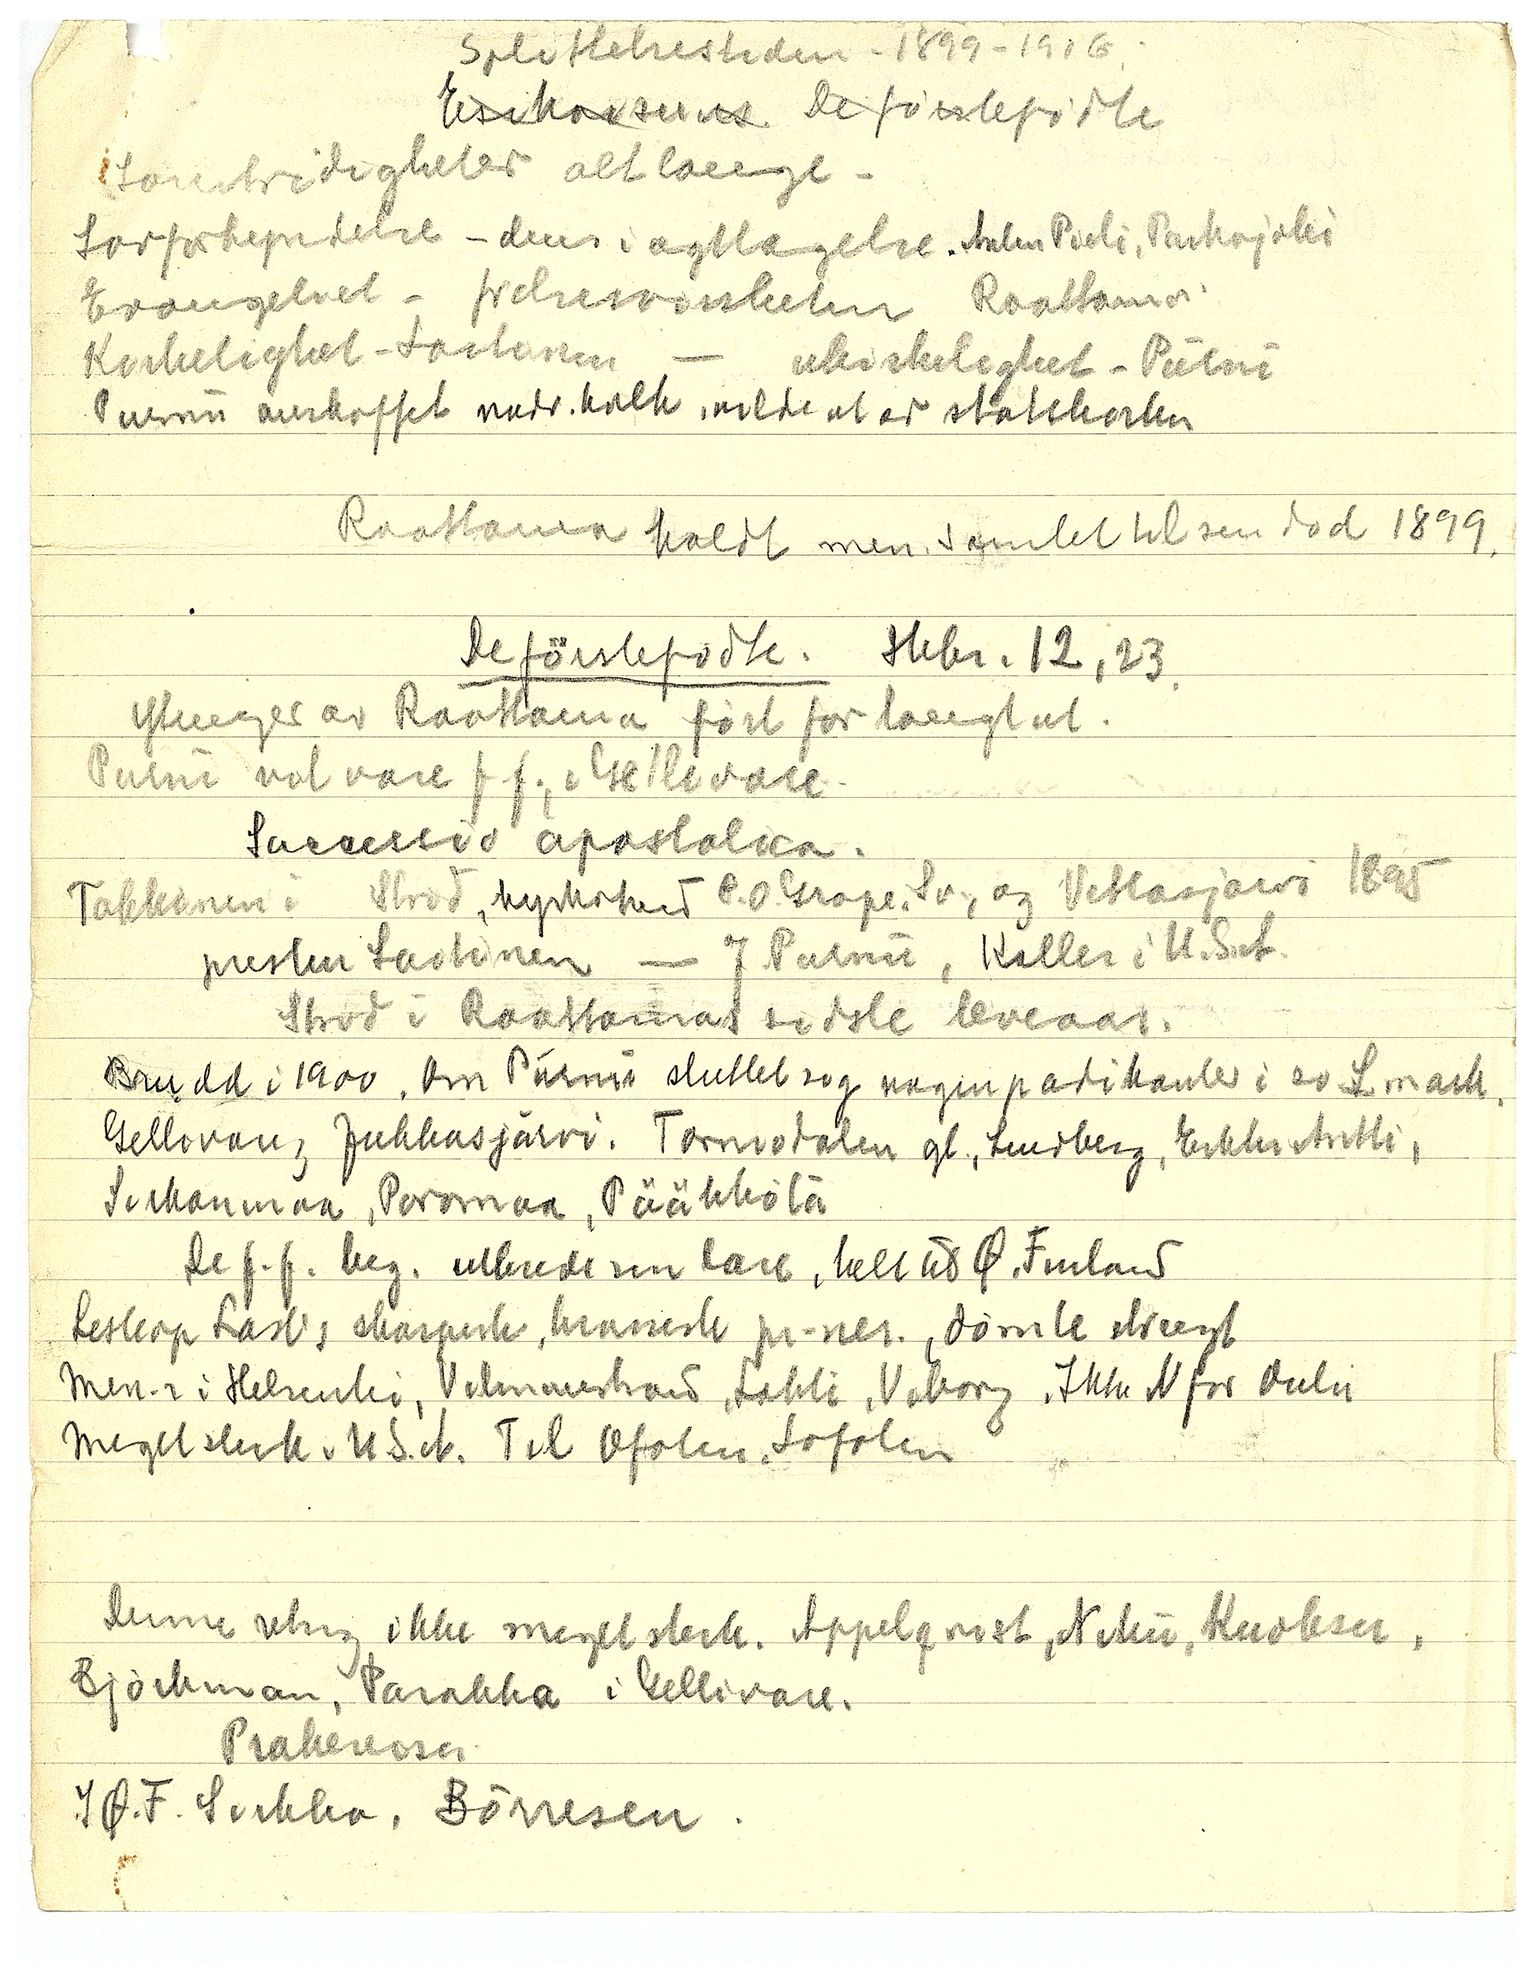 Splittelsestiden - 1899-1916.
Esikoisuus De förstefödte
Samtidigheter alt længe -
Lovforkyndelse - dens iagttagelse. Anten Pieti, Parkajoki
Evangeliet - frelsesvissheten Raattama
Kirkelighet - Laitinen — ukirkelighet - Purnu
Purnu avskaffet nadv. kalk, vilde ut av statskirken
Raattama holdt men. samlet til sin död 1899.
De förstefödte. Hebr. 12, 23.
Ytringer av Raattama först for langt ut.
Purnu vil være f.f., i Gellivare.
Successio apostolica.
Takkinen i Strid, C.O. Grape. Sv., og Vettasjärvi 1895
presten Laitinen — J Purnu, Koller i U.S.A.
Strid i Raattamas sidste leveaar.
Brudd i 1900. Om Purnu sluttet sig nogen predikanter i sv L.mark.
Gellivare, Jukkasjärvi. Tornedalen gl., Lindberg, Erkki Antti,
Siikavuoma, Poromaa, Päähkölä
De f.f. beg. utbrede sin lære, helt til Ø. Finland
Lestop Læst's skarpeste, krasseste pr-ner., dömte strengt
Men-r i Helsinki, Vilmanstrand, Lahti, Viborg. Ikke N for Oulu
Meget sterk i U.S.A. Til Ofoten. Lofoten
Denne retng ikke meget sterk. Appelqvist, Niku, Knoksen,
Björkman, Parakka i Gellivare.
I Ø.F. Sirkka, Börresen.